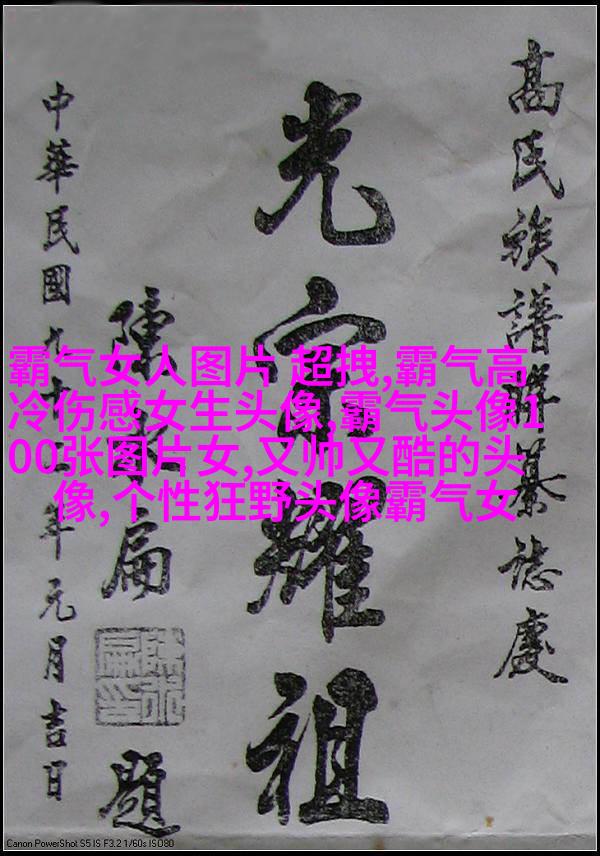 高氏族譜纂誌慶
光宗耀祖
陳水扁
題
中華民國九十年元月吉日
霸气女人图片 超拽,霸气高
冷伤感女生头像,霸气头像1
00张图片女,又帅又酷的头
像,个性狂野头像霸气女
Canon PowerShot S5 IS F3.2 1/60s ISO80